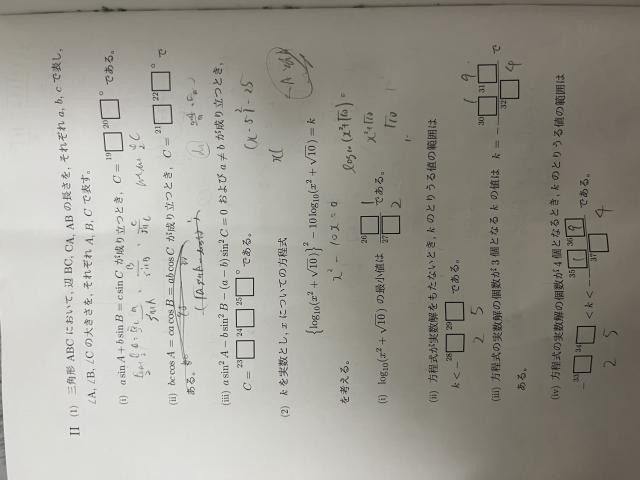 II (1) 三角形 ABC において,辺 BC, CA, AB の長さを,それぞれ a, b, c で表し,
∠A, ∠B, ∠C の大きさを,それぞれ A, B, C で表す。
(i) a sin A + b sin B = c sin C が成り立つとき, C = 19 20 ° である。
(ii) bc cos A = ca cos B = ab cos C が成り立つとき, C = 21 22 ° で
ある。
(iii) a sin² A − b sin² B − (a − b) sin² C = 0 および a ≠ b が成り立つとき,
C = 23 24 25 ° である。
(x-5)²-25
(2) k を実数とし,x についての方程式
{log₁₀(x² + √10)}² − 10 log₁₀(x² + √10) = k
x² - 10x = a
を考える。
log₁₀(x²+√10) =
x²+√10
√10
(i) log₁₀(x² + √10) の最小値は 26 1 / 27 2 である。
(ii) 方程式が実数解をもたないとき,k のとりうる値の範囲は
k < − 28 29 である。
2 5
(iii) 方程式の実数解の個数が 3 個となる k の値は k = − 30 1 31 9 / 32 4 で
ある。
(iv) 方程式の実数解の個数が 4 個となるとき,k のとりうる値の範囲は
− 33 34 < k < − 35 1 36 9 / 37 4 である。
2 5